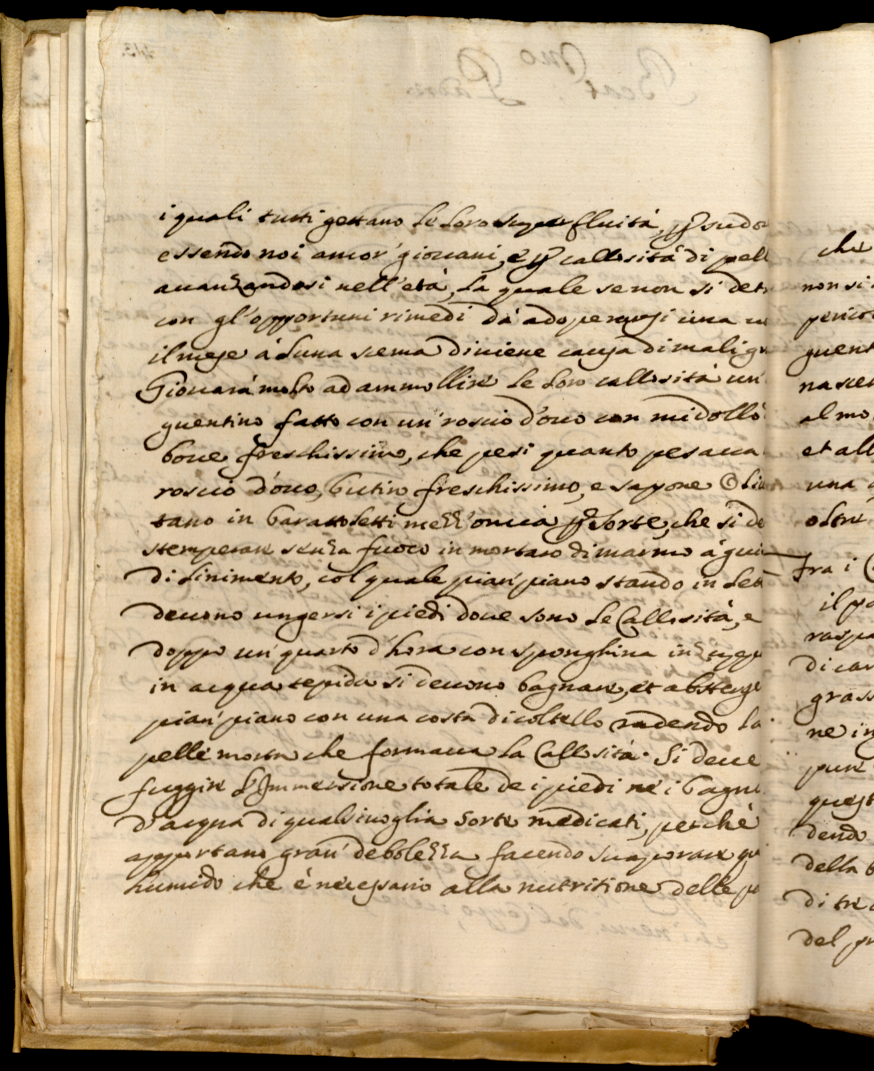 i quali tutti gettano le loro superfluità, p sudo
essendo noi ancor' giovani, e p callosità di pell
avanzandosi nell'età, la quale se non si det
con gl'opportuni rimedi da adoperarsi una
il mese à luna scema diviene causa di mali
Giovarà molto ad ammollire le loro callosità un'
guentino fatto con un' roscio d'ovo con midollo
bove freschissimo, che pesi quanto pesava
roscio d'ovo, butiro freschissimo, e sapone
tano in barattoletti mezz'oncia p sorte, che si de
stemperare senza fuoco in mortaro di marmo à gui
di linimento, col quale pian piano stando in let
devono ungersi i piedi dove sono le Callosità, e
doppo un' quarto d'hora con sponghina inzupp
in acqua tepida si devono bagnare, et absterge
pian' piano con una costa di coltello radendo la
pelle morta che formava la Callosità. Si deve
fuggire l'Immersione totale de i piedi ne i bagni
d'acqua di qualsivoglia sorte medicati, perchè
apportano gran' debbolezza facendo svaporare
humido che è necessario alla nutritione delle
che
non si
peric
guent
nascer
al mo
et all
una
oltre
fra i
il po
raspa
di car
grass
ne in
pure
quest
dendo
della
di tre
del pr